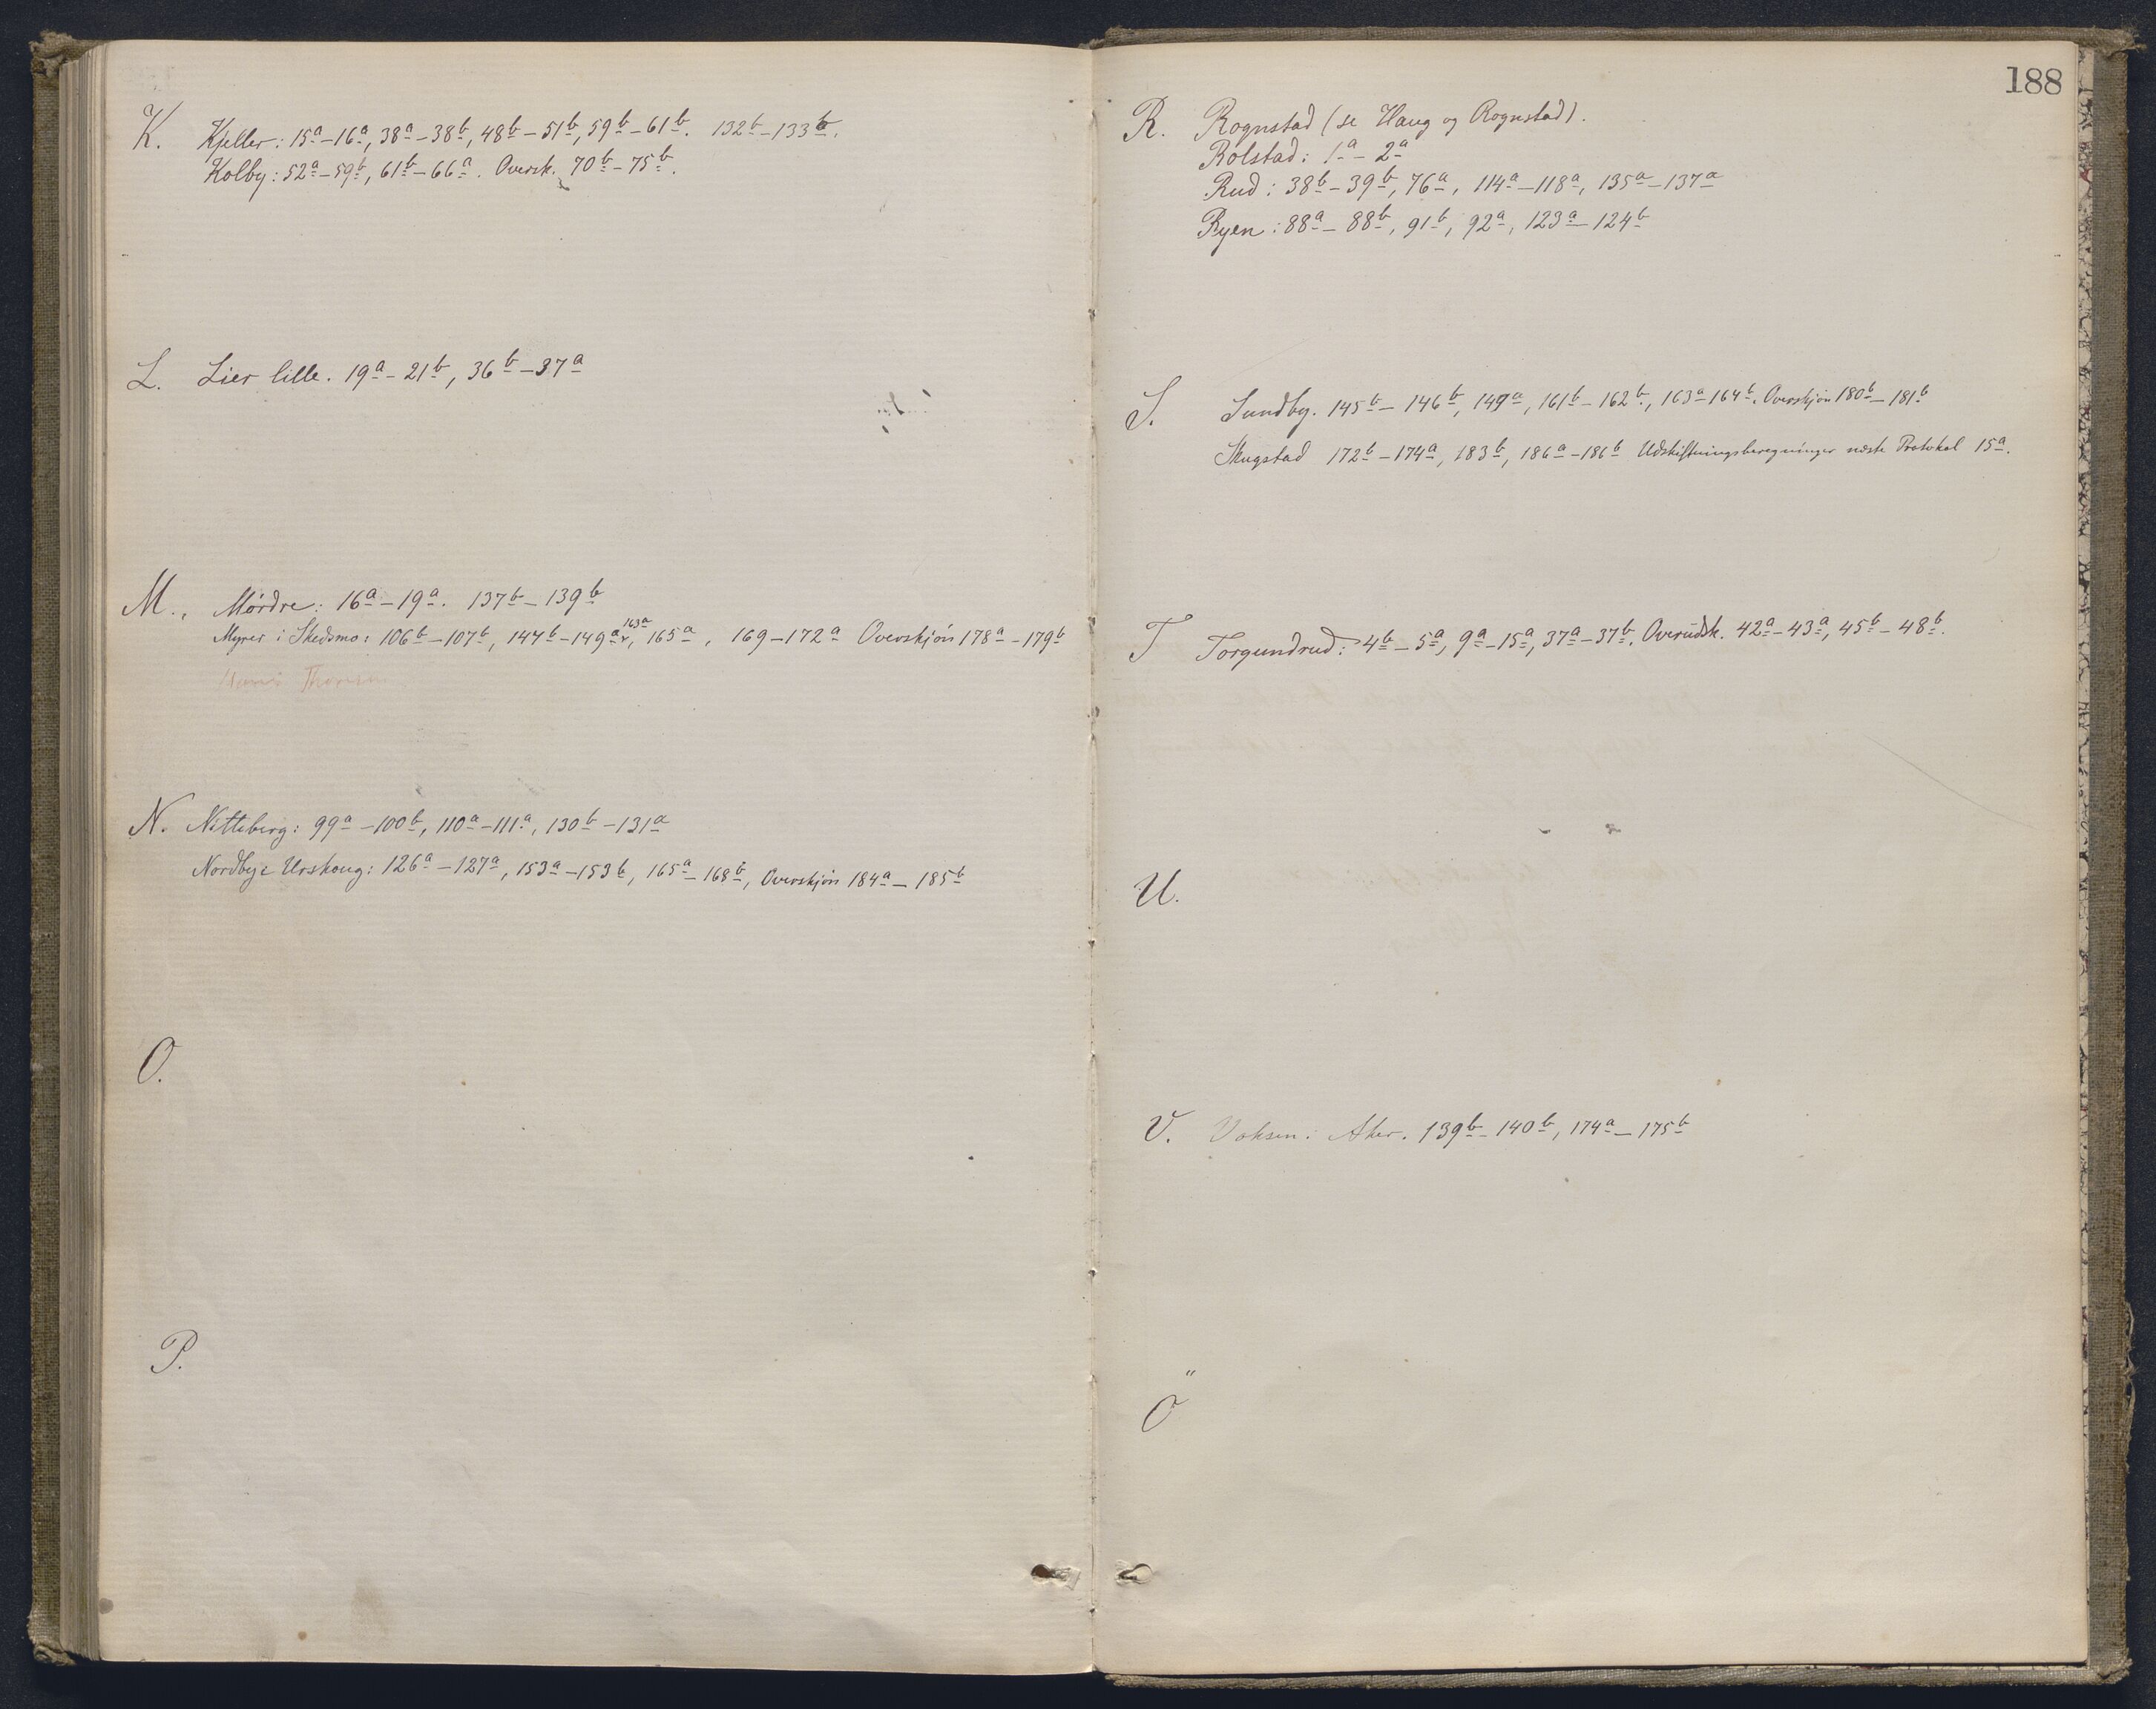 K. Kjeller: 15a–16a, 38a–38b, 48b–51b, 59b–61b. 132b–133b.
Kolby: 52a–59b, 61b–66a. Oversk. 70b–75b.
L. Lier lille. 19a–21b, 36b–37a
M. Mørdre: 16a–19a. 137b–139b
163a
Myrer i Skedsmo: 106b–107b, 147b–149a, 165a, 169–172a Overskjön 178a–179b
N. Nitteberg: 99a–100b, 110a–111a, 130b–131a
Nordby i Urskoug: 126a–127a, 153a–153b, 165a–168b, Overskjön 184a–185b
O.
P.
188
R. Rognstad (se Haug og Rognstad).
Rolstad: 1a–2a
Rud: 38b–39b, 76a, 114a–118a, 135a–137a
Ryen: 88a–88b, 91b, 92a, 123a–124b
S. Sundby. 145b–146b, 149a, 161b–162b, 163a–164b. Overskjön 180b–181b
Skugstad 172b–174a, 183b, 186a–186b Udskiftningsberegninger neste Protokol 15a.
T Torgundrud: 4b–5a, 9a–15a, 37a–37b. Overudsk. 42a–43a, 45b–48b.
U.
V. Voksen i Aker. 139b–140b, 174a–175b
Ö